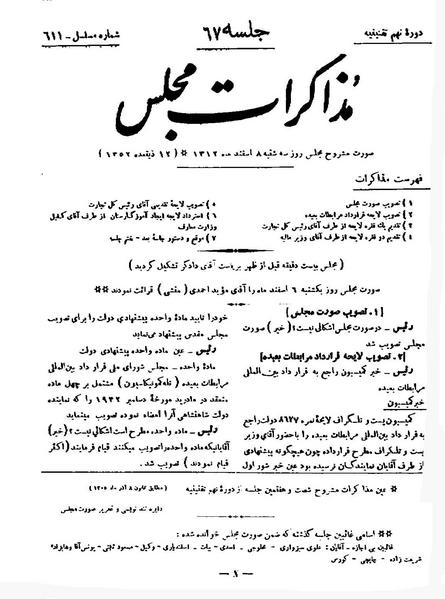 دورهٔ نهم تقنینیه
جلسه ۶۷
شماره مسلسل - ۶۱۱
مذاکرات مجلس
صورت مشروح مجلس روز سه شنبه ۸ اسفند ماه ۱۳۱۲ * (۱۲ ذیقعده ۱۳۵۲)
فهرست مذاکرات
۱) تصویب صورت مجلس
۲) تصویب لایحه قرارداد مرابطات بعیده
۳) تقدیم یك فقره لایحه از طرف آقای رئیس کل تجارت
۴) تقدیم دو فقره لایحه از طرف آقای وزیر مالیه
۵) تصویب لایحهٔ تقدیمی آقای رئیس کل تجارت
۶) استرداد لایحه ایجاد آموزگارستان از طرف آقای کفیل
وزارت معارف
۷) موقع و دستور جلسهٔ بعد - ختم جلسه
(مجلس بیست دقیقه قبل از ظهر بریاست آقای دادگر تشکیل گردید)
صورت مجلس روز یکشنبه ۶ اسفند ماه را آقای مؤید احمدی (منشی) قرائت نمودند **
[۱ـ تصویب صورت مجلس]
رئیس ـ در صورت مجلس اشکالی نیست؟ (خیر) صورت
مجلس تصویب شد
[۲ـ تصویب لایحه قرارداد مرابطات بعیده]
رئیس ـ خبر کمیسیون راجع به قرار داد بین المللی
مرابطات بعیده
خبر کمیسیون
کمیسیون پست و تلگراف لایحهٔ نمره ۸۶۲۷ دولت راجع
به قرار داد بین المللی مرابطات بعیده را باحضور آقای وزیر
پست و تلگراف مطرح قرارداده چون هیچگونه پیشنهادی
از طرف آقایان نمایندگان نرسیده بود عین خبر شور اول
خود را تایید مادهٔ واحده پیشنهادی دولت را برای تصویب
مجلس مقدس پیشنهاد می‌نماید
رئیس ـ عین ماده واحده پیشنهادی دولت
مادهٔ واحده ـ مجلس شورای ملی قرار داد بین‌المللی
مرابطات بعیده (تله‌کونیکاسیون) مشتمل بر چهل ماده
منعقد در مادرید مورخهٔ دسامبر ۱۹۳۲ را که نماینده
دولت شاهنشاهی آنرا امضاء نموده تصویب مینماید
رئیس ـ ماده واحده مطرح است اشکالی نیست؟ (خیر)
آقایانیکه ماده واحده را تصویب میکنند قیام فرمایند (اکثر
قیام نمودند) تصویب شد.
** عین مذاکرات مشروح شصت و هفتمین جلسه از دوره نهم تقنینیه
(مطابق قانون ۸ آذر ماه ۱۳۰۵)
دایره تند نویسی و تحریر صورت مجلس
** اسامی غائبین جلسه گذشته که ضمن صورت مجلس خوانده شده:
غائبین بی اجازه ـ آقایان: علوی سبزواری ـ مخلوجی ـ اسدی ـ بیات ـ اسفندیاری ـ وکیل ـ مسعود ثابتی ـ یونس آقا وهابزاده
شریعت زاده ـ چایچی ـ کورس
ـ ۸ ـ